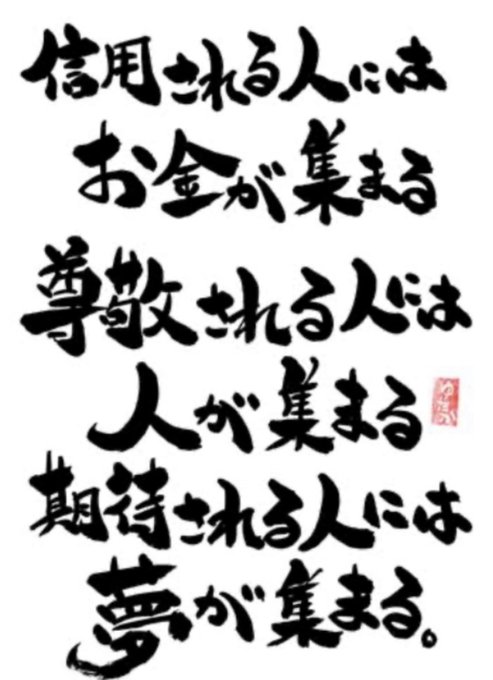 信用される人には
お金が集まる
尊敬される人には
人が集まる
期待される人には
夢が集まる。